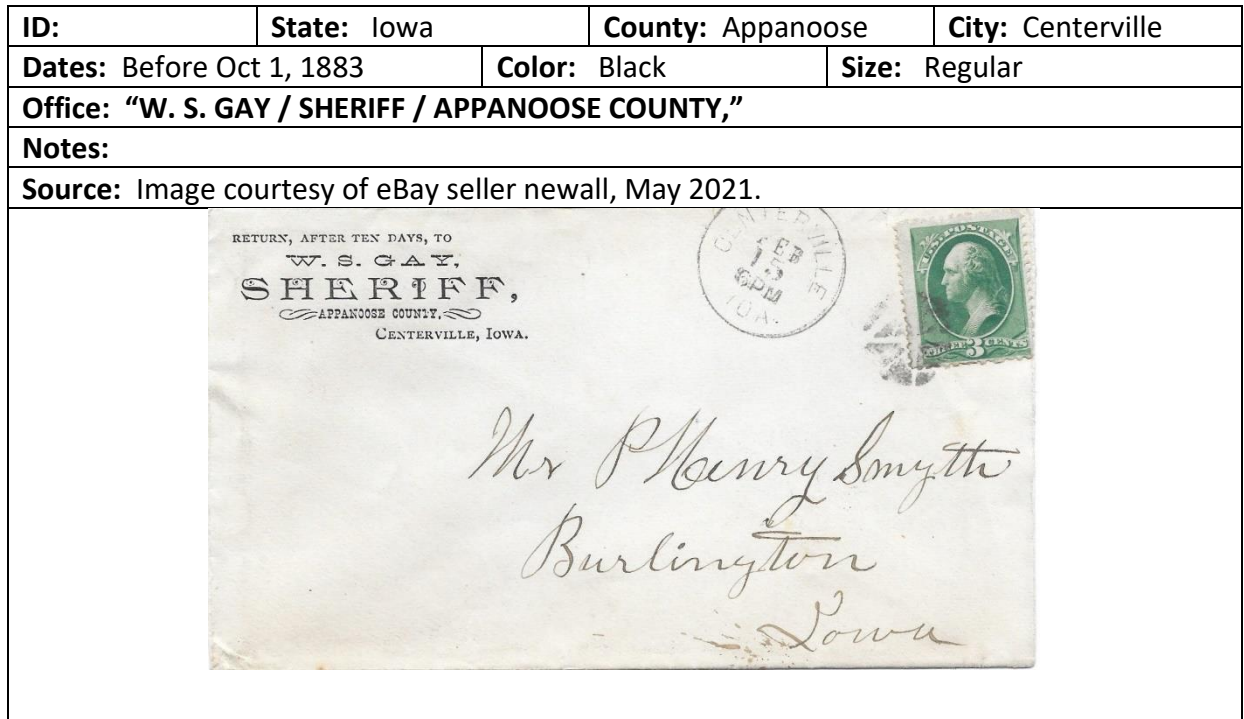 ID: State: Iowa County: Appanoose City: Centerville
Dates: Before Oct 1, 1883 Color: Black Size: Regular
Office: “W. S. GAY / SHERIFF / APPANOOSE COUNTY,”
Notes:
Source: Image courtesy of eBay seller newall, May 2021.
RETURN, AFTER TEN DAYS, TO
W. S. GAY,
SHERIFF,
APPANOOSE COUNTY,
CENTERVILLE, IOWA.
CENTERVILLE
FEB
15
6PM
IOA.
U.S. POSTAGE
THREE 3 CENTS
Mr P Henry Smyth
Burlington
Iowa